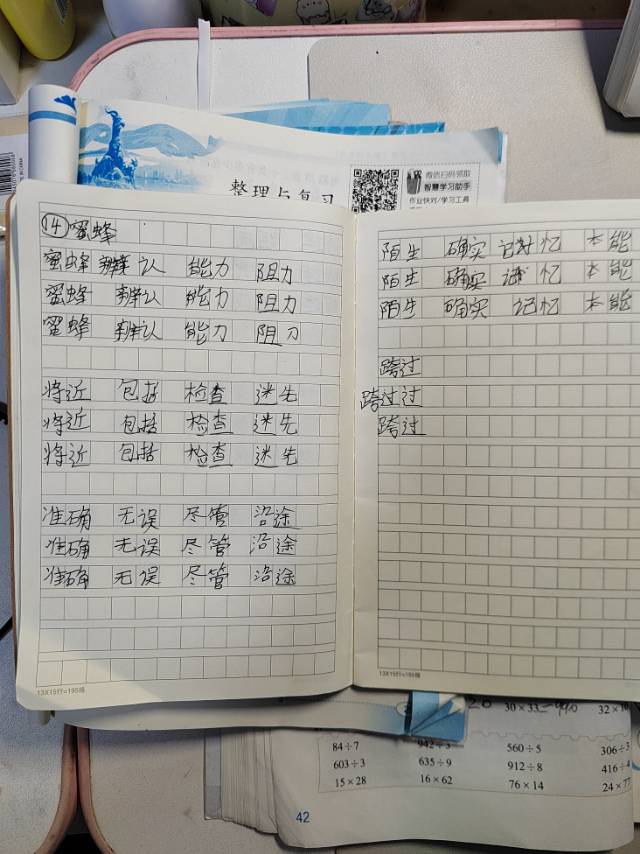 整理与复习
微信扫码领取
智慧学习助手
作业快对/学习工具
⑭蜜蜂
蜜蜂 辨认 能力 阻力
蜜蜂 辨认 能力 阻力
蜜蜂 辨认 能力 阻刀
将近 包括 检查 迷失
将近 包括 检查 迷失
将近 包括 检查 迷失
准确 无误 尽管 沿途
准确 无误 尽管 沿途
准确 无误 尽管 沿途
13X15行=195格
陌生 确实 记忆 本能
陌生 确实 记忆 本能
陌生 确实 记忆 本能
跨过
跨过过
跨过
13X15行=195格
20 30×33=990 32×10
84÷7 942÷3 560÷5 306÷3
603÷3 635÷9 912÷8 416÷4
15×28 16×62 76×14 24×77
42